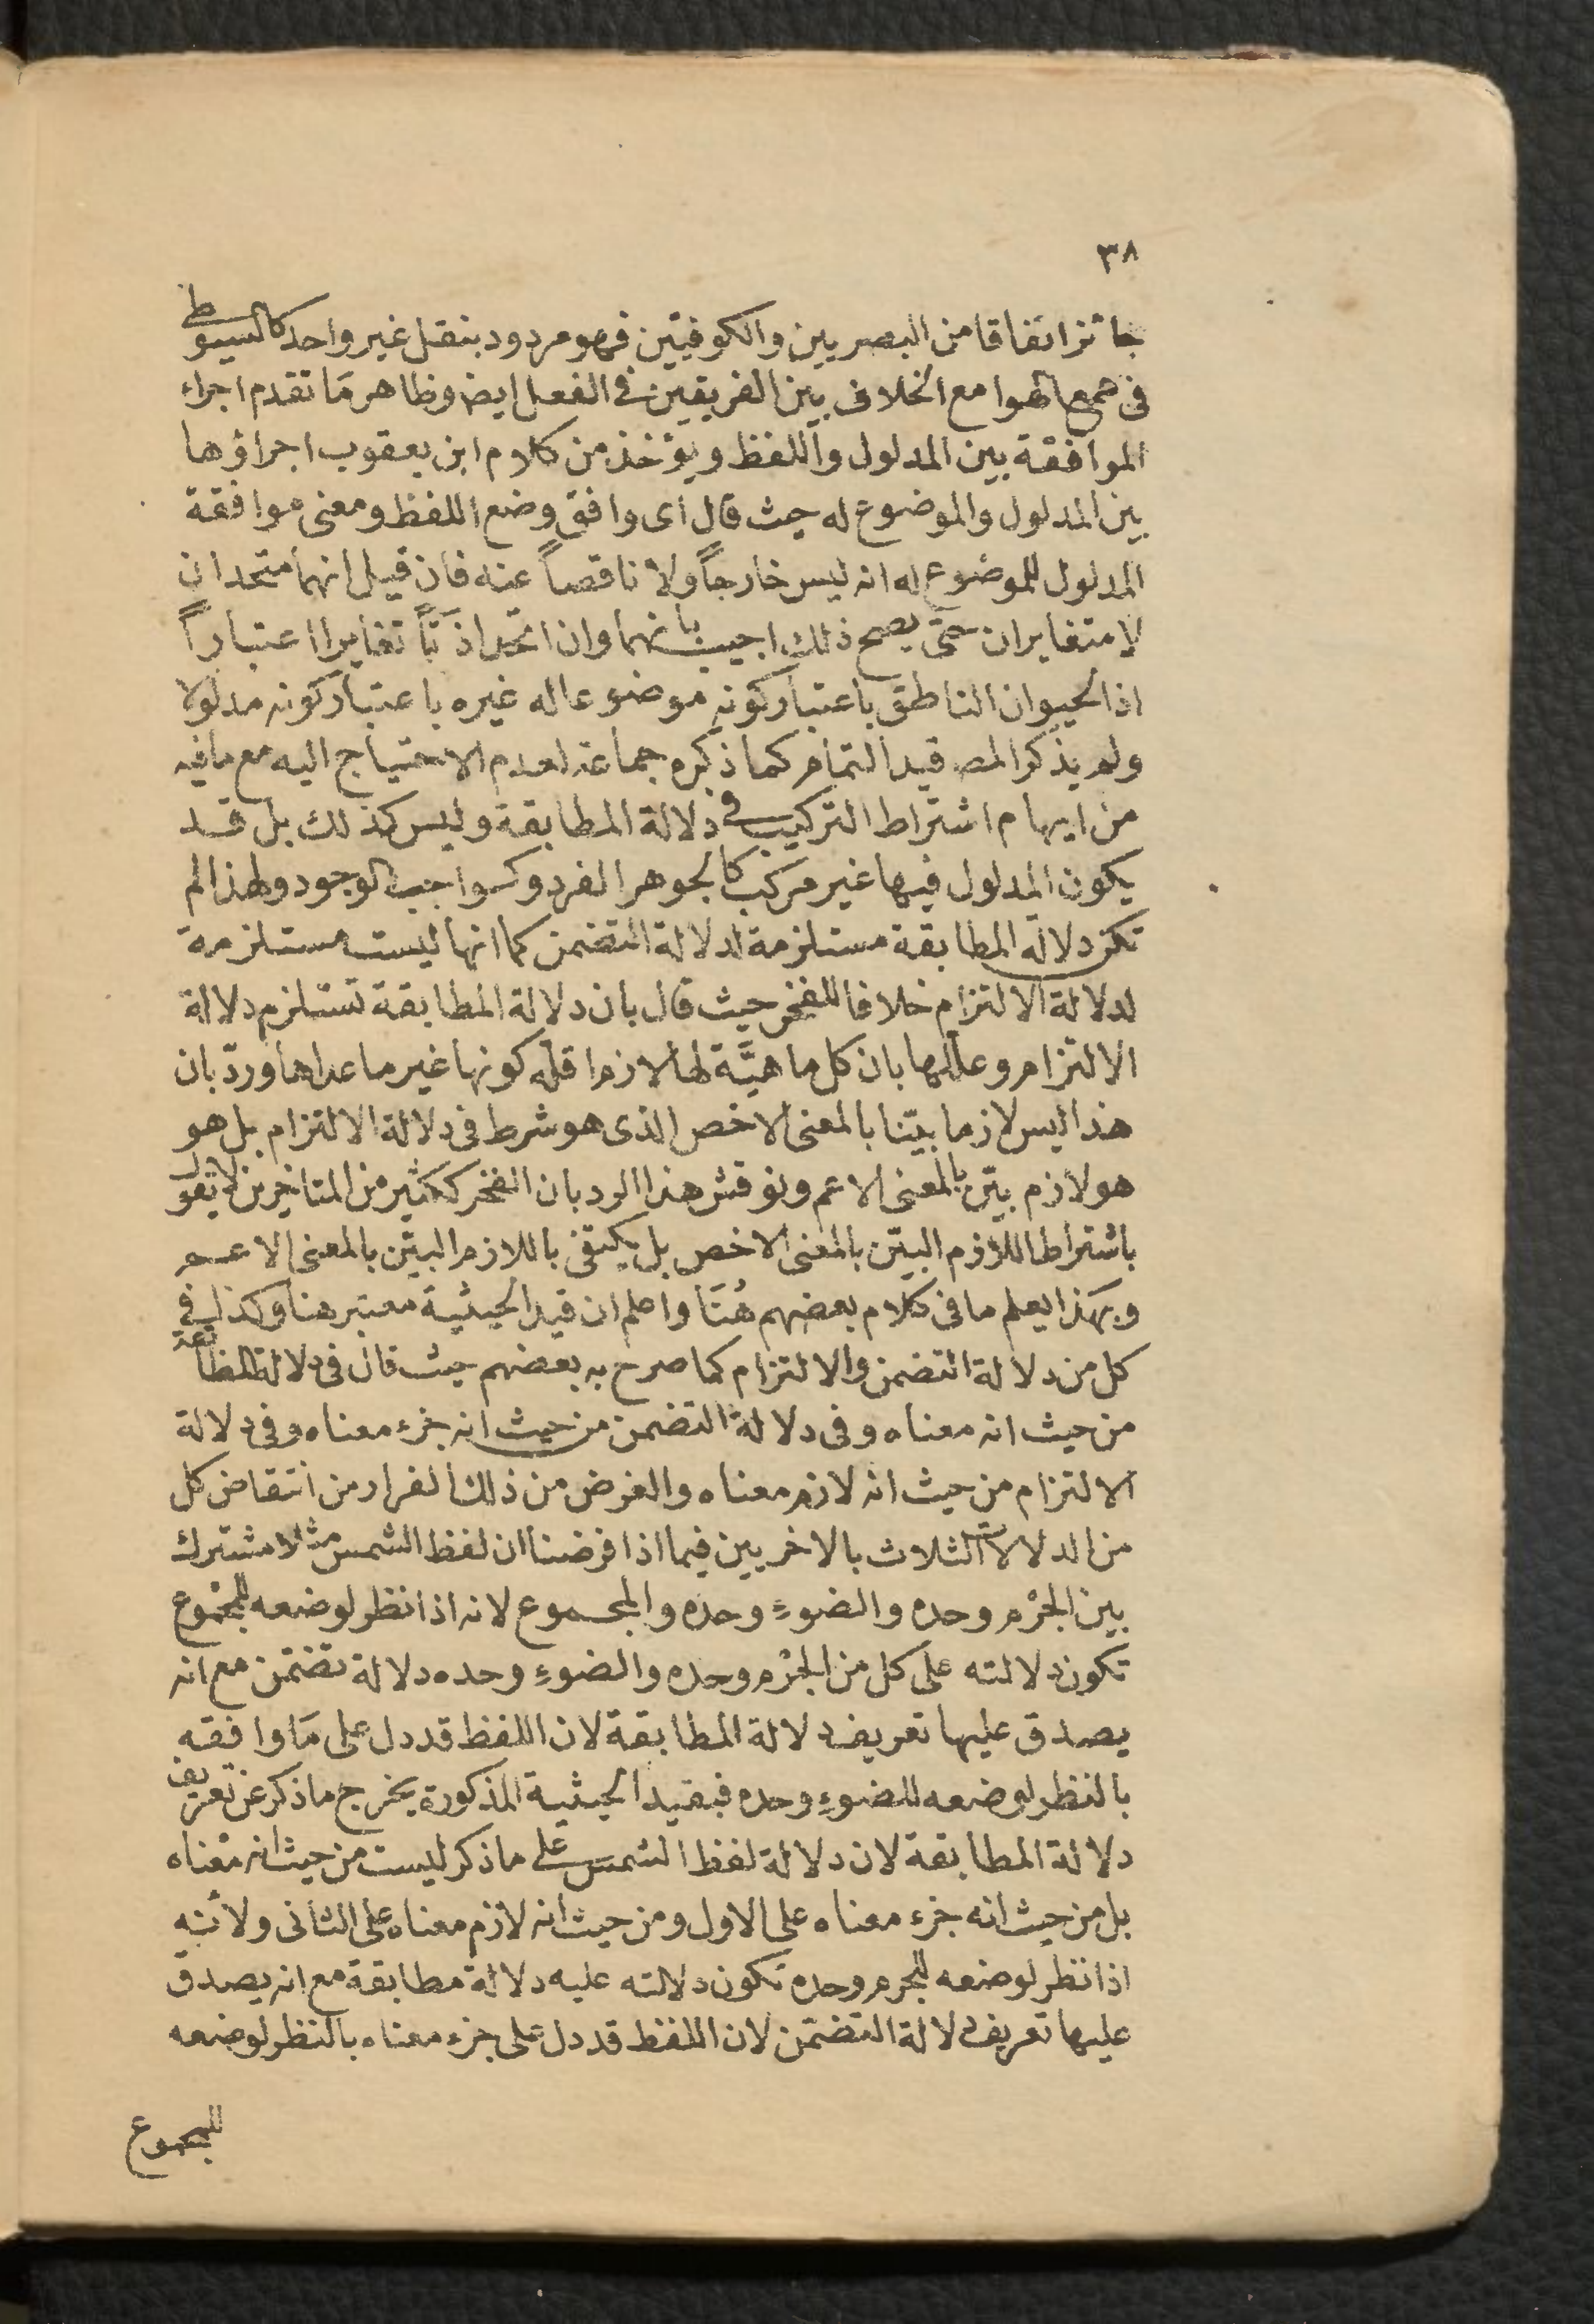 ٣٨
جائز اتفاقا من البصريين والكوفيّين فهو مردود بنقل غير واحد كالسيوطى
فى همع الهوامع الخلاف بين الفريقين فى الفعل ايض وظاهر مَا تقدم اجراء
الموافقة بين المدلول واللفظ ويؤخذ من كلام ابن يعقوب اجراؤها
بين المدلول والموضوع له حيث قال اى وافق وضع اللفظ ومعنى موافقة
المدلول للموضوع له انه ليس خارجاً ولا ناقصاً عنه فان قيل انهما متحدان
لا متغايران حتى يصح ذلك اجيب بانهما وان اتحدا ذاتاً تغايرا اعتباراً
اذ الحيوان الناطق باعتبار كونه موضوعا له غيره باعتبار كونه مدلولا
ولم يذكر المصـ قيد التمام كما ذكره جماعة لعدم الاحتياج اليه مع ما فيه
من ايهام اشتراط التركيب فى دلالة المطابقة وليس كذلك بل قد
يكون المدلول فيها غير مركب كالجوهر الفرد وكواجب الوجود ولهذا لم
تكن دلالة المطابقة مستلزمة لدلالة التضمن كما انها ليست مستلزمة
لدلالة الالتزام خلافا للفخر حيث قال بان دلالة المطابقة تستلزم دلالة
الالتزام وعللها بان كل ماهيَّة لها لازم اقله كونها غير ما عداها وردّ بان
هذا ليس لازما بيّنا بالمعنى الاخص الذى هو شرط فى دلالة الالتزام بل هو
هو لازم بيّن بالمعنى الاعم ونوقش هذا الرد بان الفخر ككثير من المتاخرين لا يقول
باشتراط اللازم البيّن بالمعنى الاخص بل يكتفى باللازم البيّن بالمعنى الاعم
وبهذا يعلم ما فى كلام بعضهم هُنَا واعلم ان قيد الحيثية معتبر هنا وكذلك فى
كل من دلالة التضمن والالتزام كما صرح به بعضهم حيث قال فى دلالة المطابقة
من حيث انه معناه وفى دلالة التضمن من حيث انه جزء معناه وفى دلالة
الالتزام من حيث انه لازم معناه والغرض من ذلك الفرار من انتقاض كل
من الدلالات الثلاث بالاخريين فيما اذا فرضنا ان لفظ الشمس مثلا مشترك
بين الجرْم وحده والضوءِ وحده والمجموع لانه اذا نظر لوضعه للمجموع
تكون دلالته على كل من الجرْم وحده والضوءِ وحده دلالة تضمّن مع انه
يصدق عليها تعريف دلالة المطابقة لان اللفظ قد دل على مَا وافقه
بالنظر لوضعه للضوءِ وحده فبقيد الحيثية المذكورة يخرج ما ذكر عن تعريف
دلالة المطابقة لان دلالة لفظ الشمس على ما ذكر ليست من حيث انه معناه
بل من حيث انه جزء معناه على الاول ومن حيث انه لازم معناه على الثانى ولأنه
اذا نظر لوضعه للجرم وحده تكون دلالته عليه دلالة مطابقة مع انه يصدق
عليها تعريف دلالة التضمّن لان اللفظ قد دل على جزء معناه بالنظر لوضعه
للمجموع